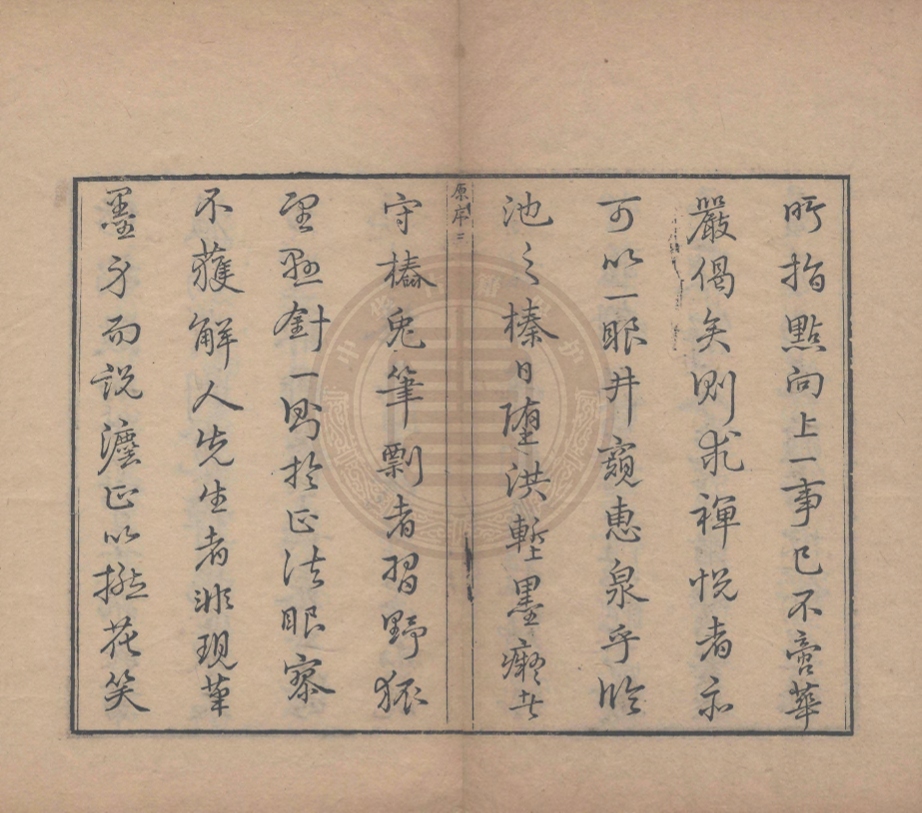 所指點向上一事已不啻華
嚴偈矣則求禪悅者亦
可以一眼井窺惠泉乎臨
池之榛日墮洪塹墨癡者
原序二
守樁兔筆剽者摺野狐
聖懸針一焉於正法眼察
不獲解人先生者非現筆
墨身而說法正以拈花笑